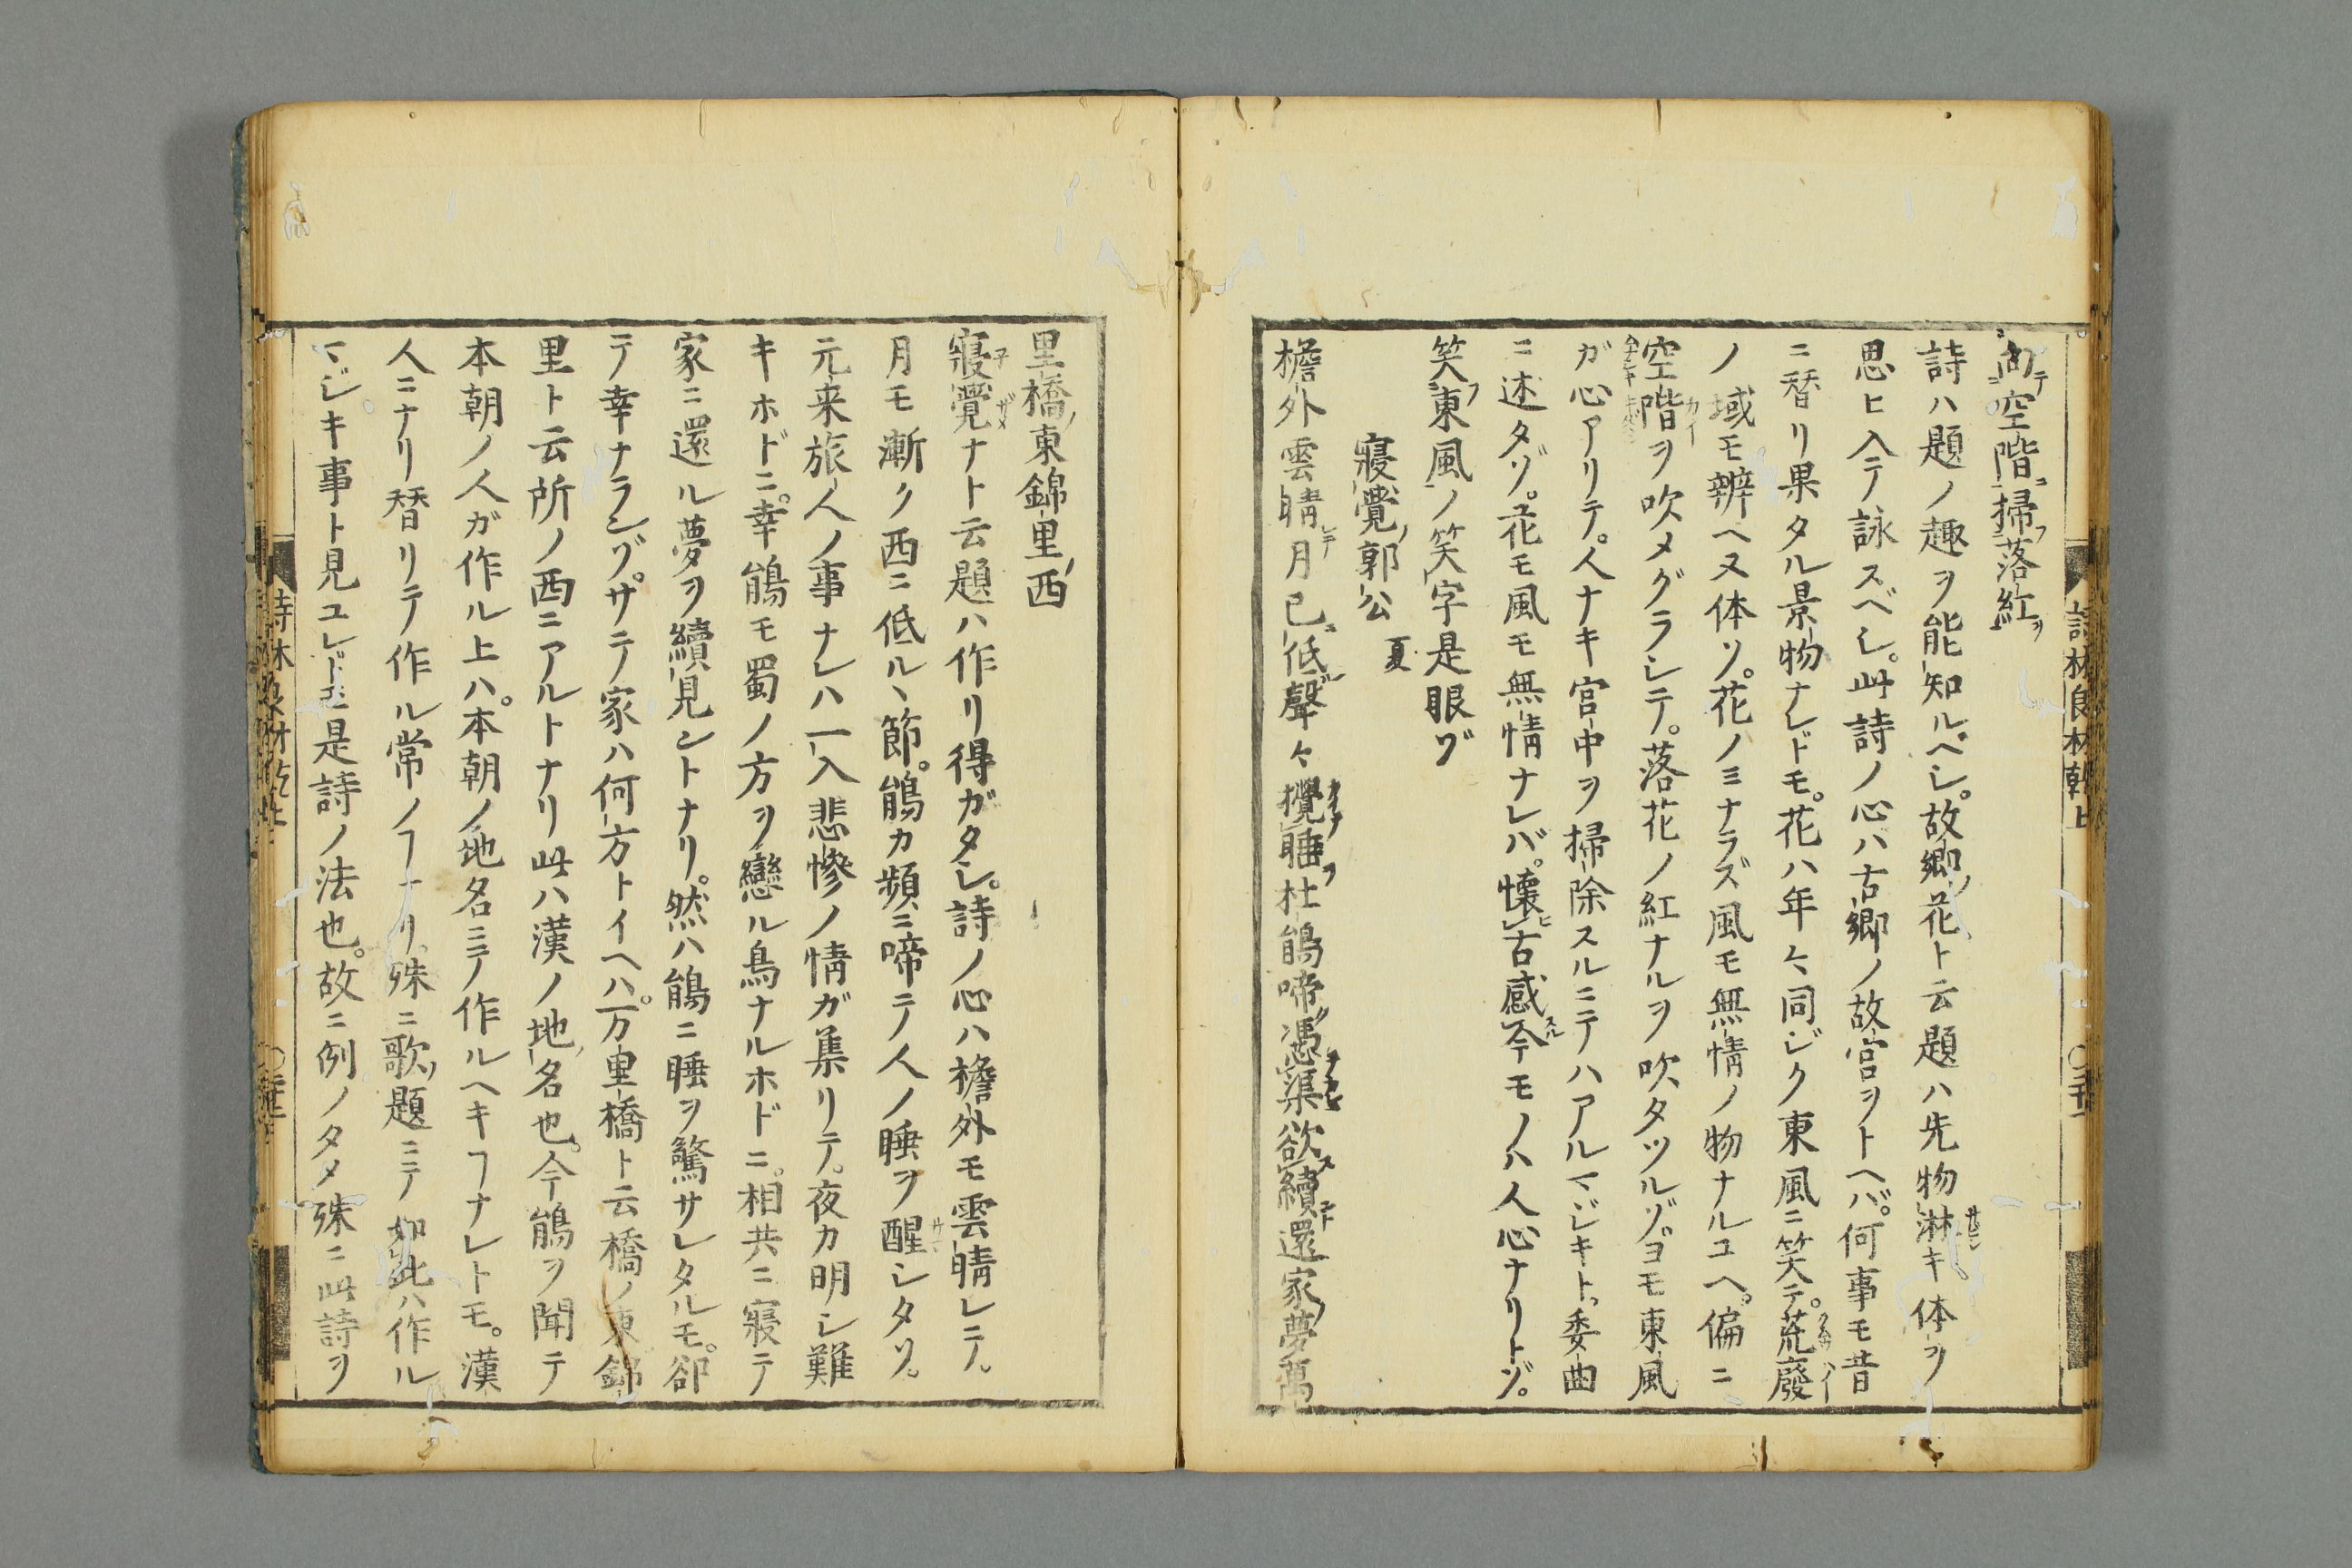 向空階掃落紅
詩ハ題ノ趣ヲ能知ルベシ。故郷花ト云題ハ先物淋キ体ヲ
思ヒ入テ詠スベシ。此詩ノ心ハ古郷ノ故宮ヲトヘバ。何事モ昔
ニ替リ果タル景物ナレドモ。花ハ年々同ジク東風ニ笑テ。荒廢
ノ域モ辨ヘヌ体ソ。花ノミナラズ風モ無情ノ物ナルユヘ。偏ニ
空階ヲ吹メグラシテ。落花ノ紅ナルヲ吹タツルゾ。ヨモ東風
ガ心アリテ。人ナキ宮中ヲ掃除スルニテハアルマジキト。委曲
ニ述タゾ。花モ風モ無情ナレバ。懐古感今モノハ人心ナリトゾ。
笑東風ノ笑字是眼ゾ
寢覺郭公 夏
檐外雲晴月已低聲々攪睡杜鵑啼憑渠欲續還家夢萬
詩林良材乾上
里橋東錦里西
寢覺ナト云題ハ作リ得ガタシ。詩ノ心ハ檐外モ雲晴レテ。
月モ漸ク西ニ低ル、節。鵑カ頻ニ啼テ人ノ睡ヲ醒シタリ。
元来旅人ノ事ナレハ一入悲慘ノ情ガ集リテ。夜カ明シ難
キホドニ。幸鵑モ蜀ノ方ヲ戀ル鳥ナルホドニ。相共ニ寢テ
家ニ還ル夢ヲ續見ントナリ。然ハ鵑ニ睡ヲ驚サレタルモ。卻
テ幸ナランゾ。サテ家ハ何方トイヘハ。万里橋ト云橋ノ東錦
里ト云所ノ西ニアルトナリ此ハ漢ノ地名也。今鵑ヲ聞テ
本朝ノ人ガ作ル上ハ。本朝ノ地名ニテ作ルヘキヿナレトモ。漢
人ニナリ替リテ作ル常ノヿナリ。殊ニ歌題ニテ如此ハ作ル
マジキ事ト見ユレドモ是詩ノ法也。故ニ例ノタメ殊ニ此詩ヲ